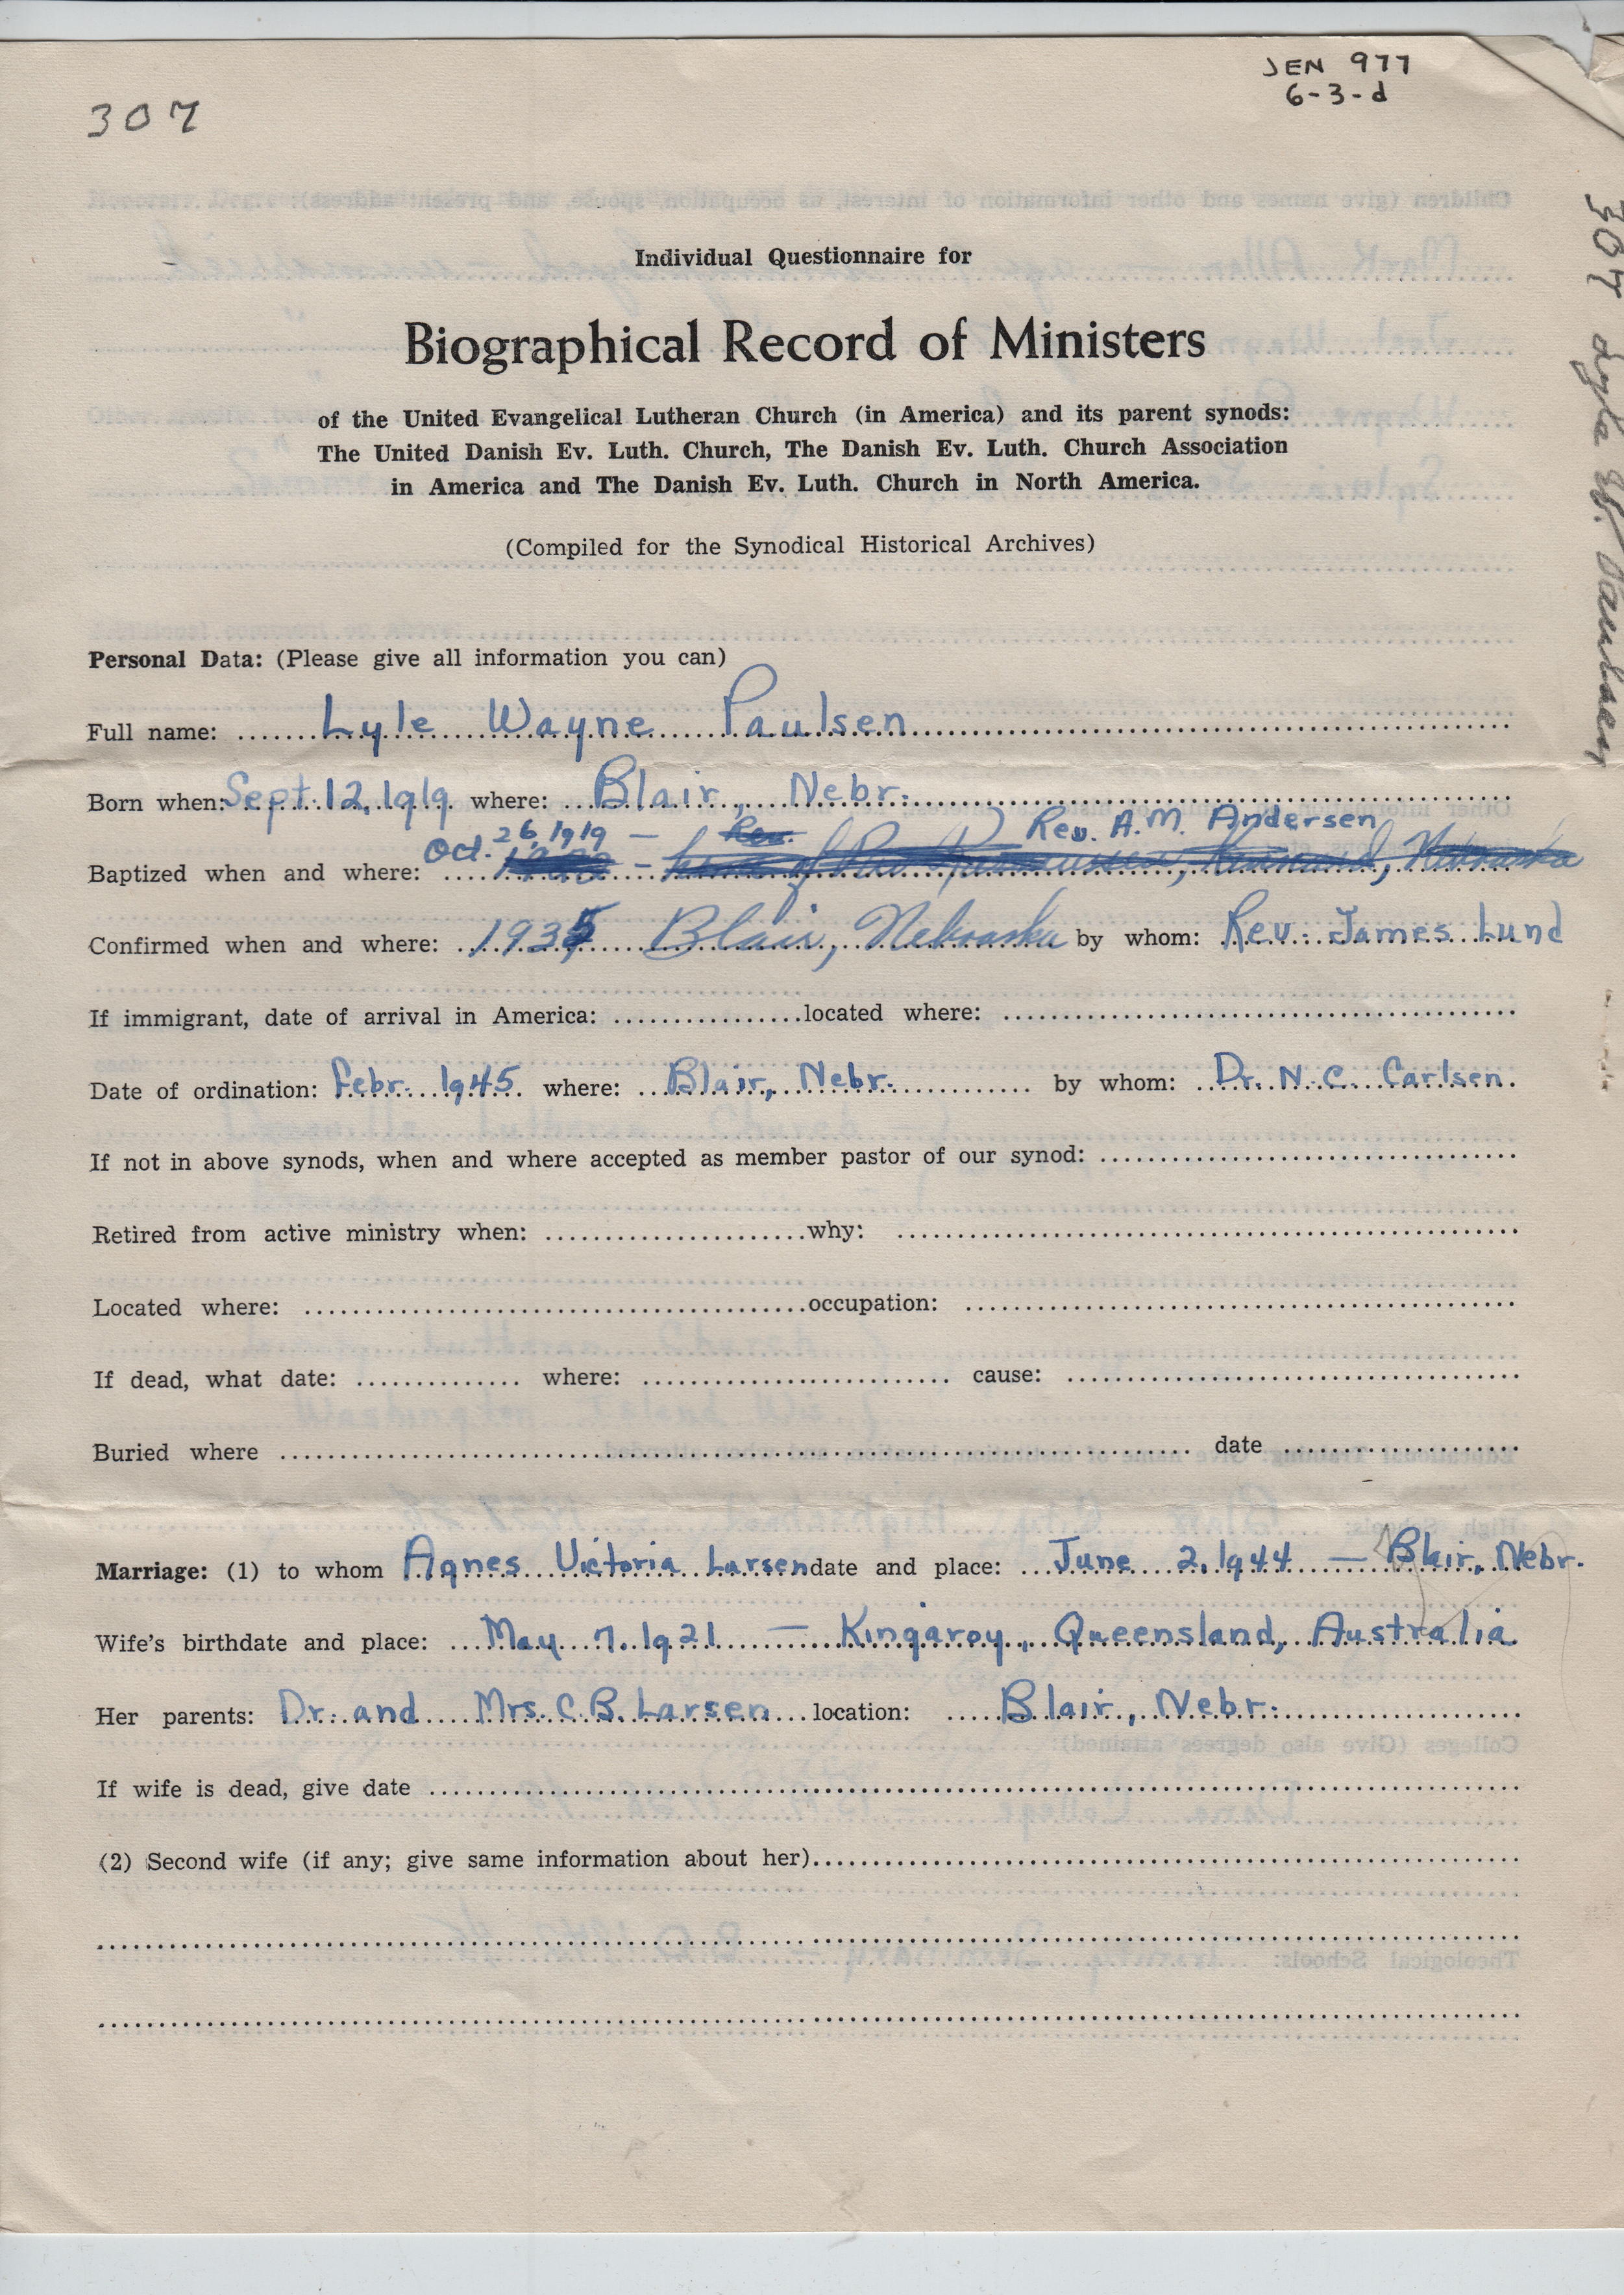 JEN 977
6-3-d
307
Individual Questionnaire for
Biographical Record of Ministers
of the United Evangelical Lutheran Church (in America) and its parent synods:
The United Danish Ev. Luth. Church, The Danish Ev. Luth. Church Association
in America and The Danish Ev. Luth. Church in North America.
(Compiled for the Synodical Historical Archives)
Personal Data: (Please give all information you can)
Full name: Lyle Wayne Paulsen
Born when: Sept. 12, 1919 where: Blair, Nebr.
Oct. 26, 1919 — Rev. A.M. Andersen
Baptized when and where:
Confirmed when and where: 1935 Blair, Nebraska by whom: Rev. James Lund
If immigrant, date of arrival in America: located where:
Date of ordination: Febr. 1945 where: Blair, Nebr. by whom: Dr. N.C. Carlsen
If not in above synods, when and where accepted as member pastor of our synod:
Retired from active ministry when: why:
Located where: occupation:
If dead, what date: where: cause:
Buried where date
Marriage: (1) to whom Agnes Victoria Larsen date and place: June 2, 1944 — Blair, Nebr.
Wife's birthdate and place: May 7, 1921 — Kingaroy, Queensland, Australia
Her parents: Dr. and Mrs. C.B. Larsen location: Blair, Nebr.
If wife is dead, give date
(2) Second wife (if any; give same information about her)
307 Lyle W. Paulsen